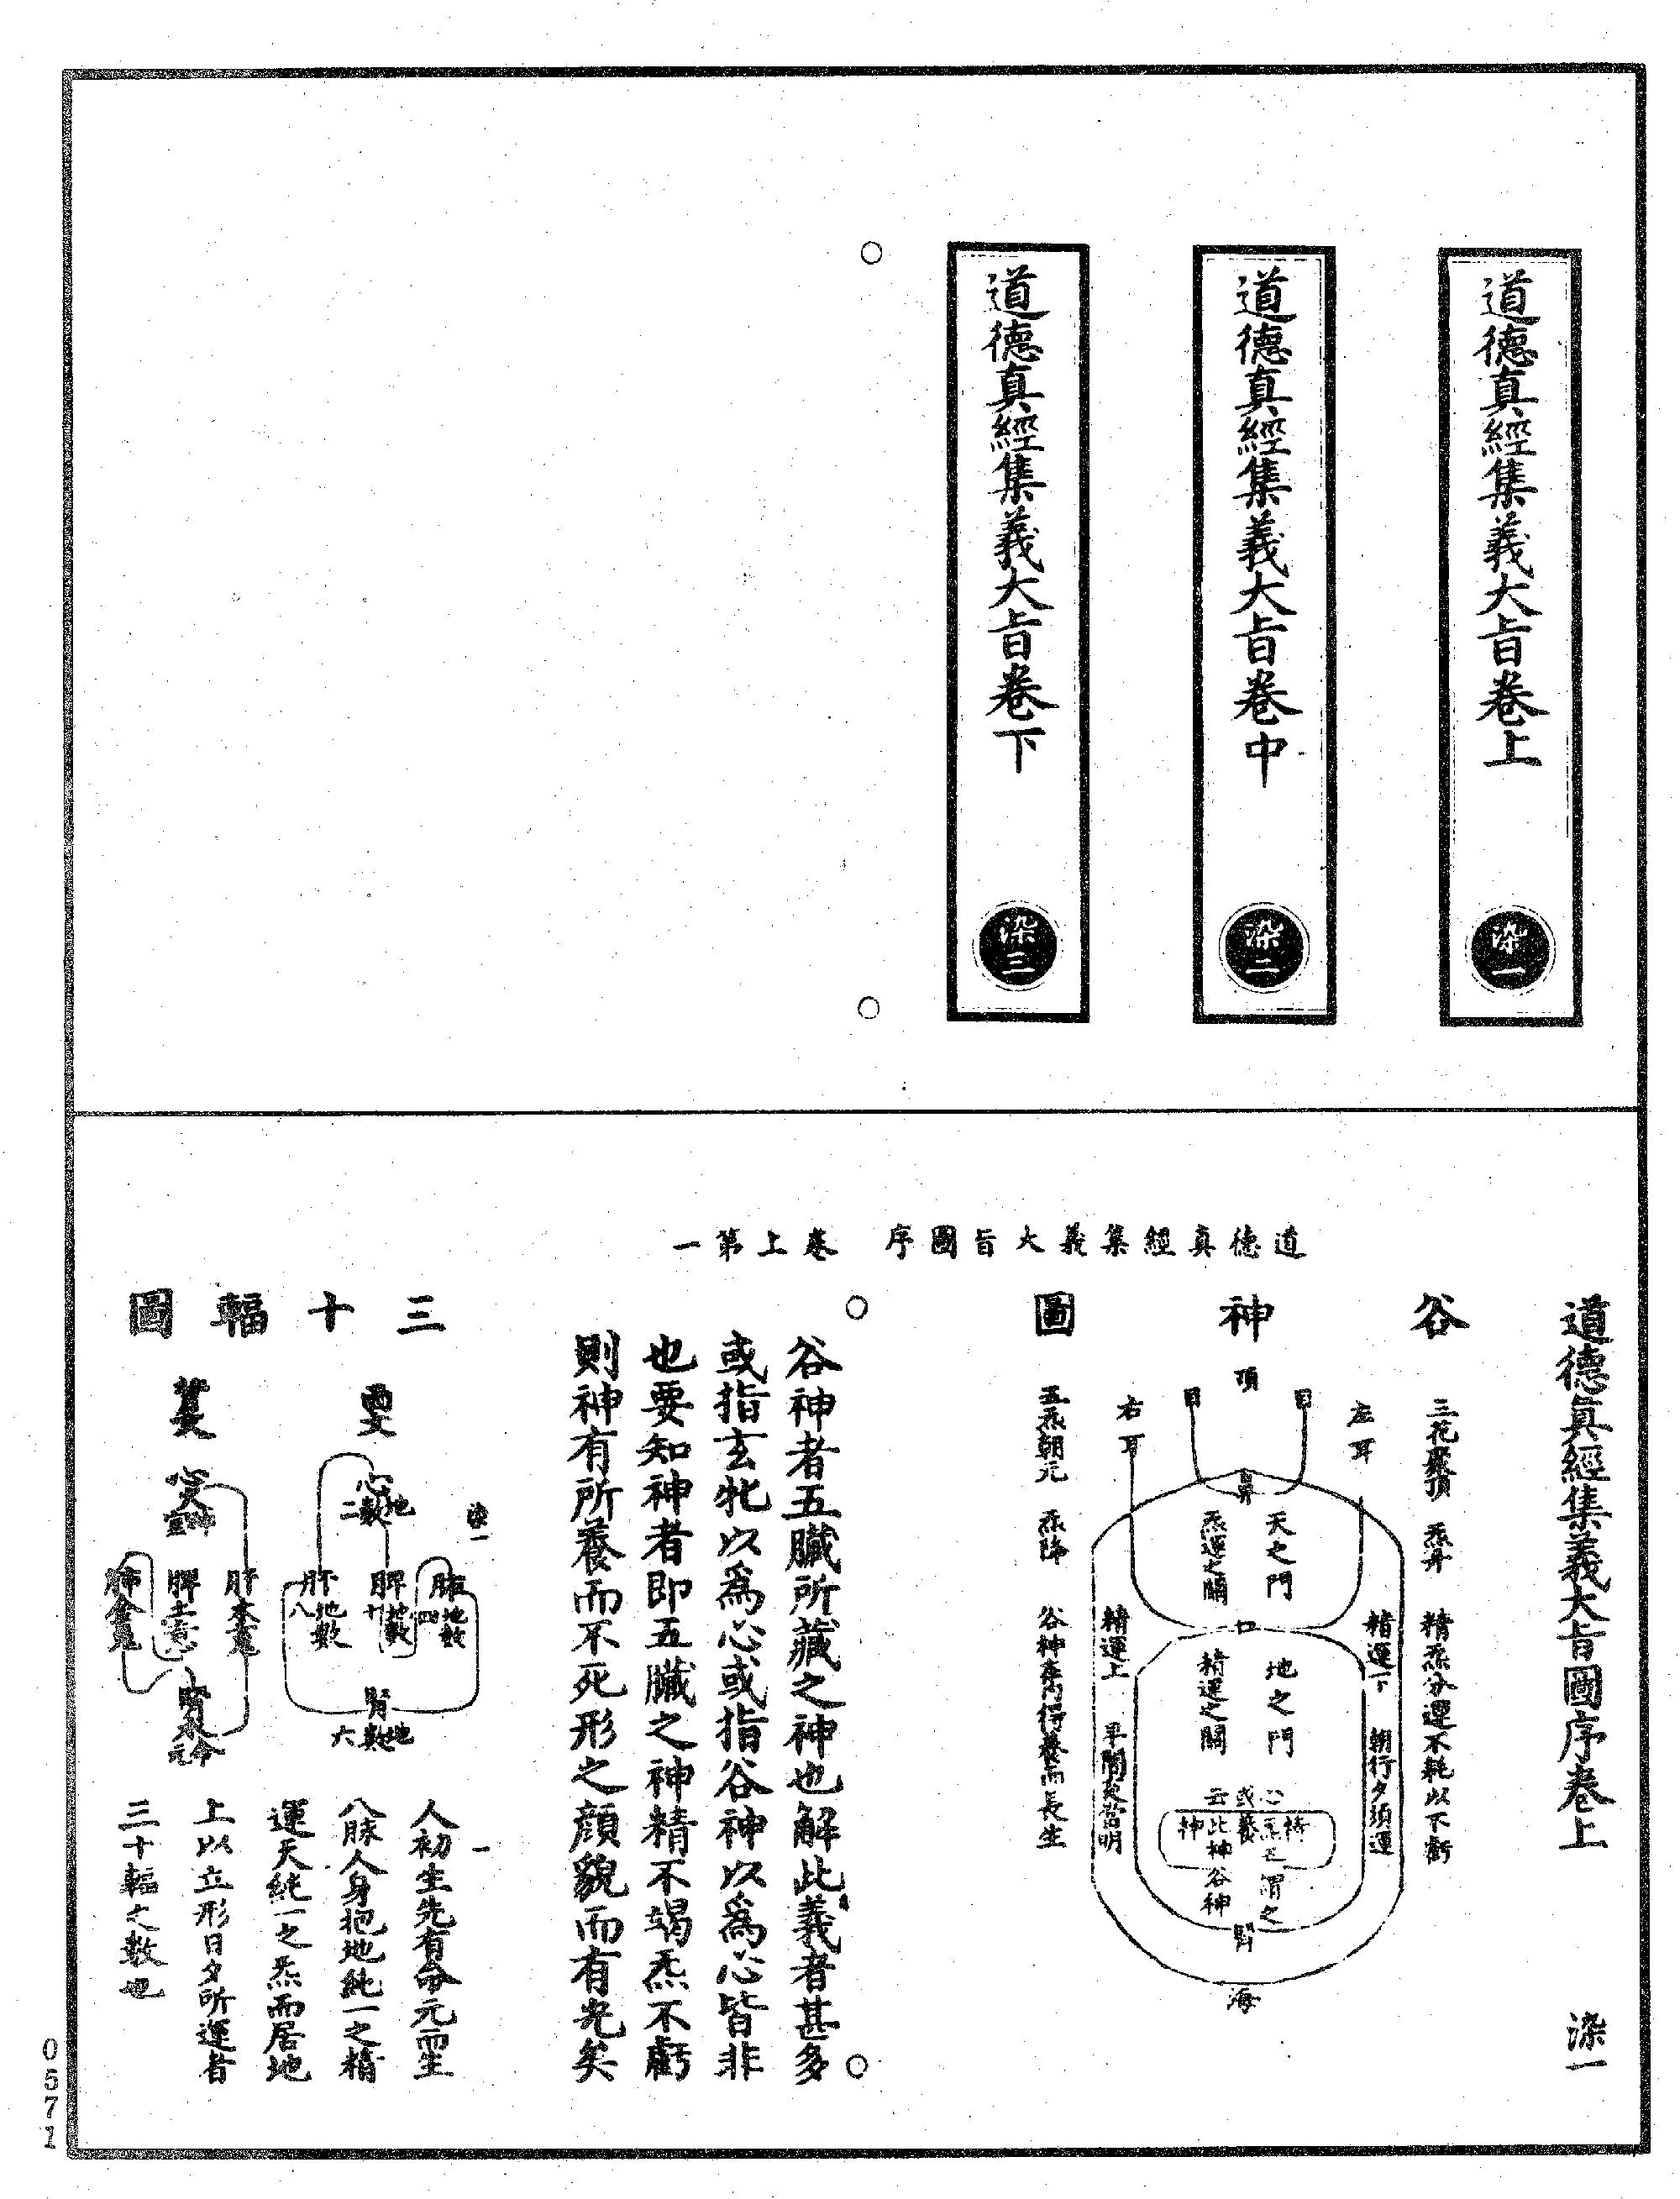 道德真經集義大旨卷上
染一
道德真經集義大旨卷中
染二
道德真經集義大旨卷下
染三
道德真經集義大旨圖序 卷上第一
道德真經集義大旨圖序卷上 染一
谷神圖
三花聚頂 炁升 精炁分運不耗以不虧
左耳
目
頂
目
右耳
鼻
天之門
炁運之關
口
地之門
精運之關
精運下 朝行夕須運
精運上 平閒夾脊明
腎
海
五炁朝元 炁降 谷神存內得養而長生
谷神者五臟所藏之神也解此義者甚多
或指玄牝以為心或指谷神以為心皆非
也要知神者即五臟之神精不竭炁不虧
則神有所養而不死形之顏貌而有光矣
三十輻圖
染一
心地數二
肺地數四
脾地數十
肝地數八
腎地數六
心火神
肝木魂
脾土意
肺金魄
腎水
一
人初生先有命元而生
八脉人身抱地純一之精
運天純一之炁而居地
上以立形日夕所運者
三十輻之數也
0571